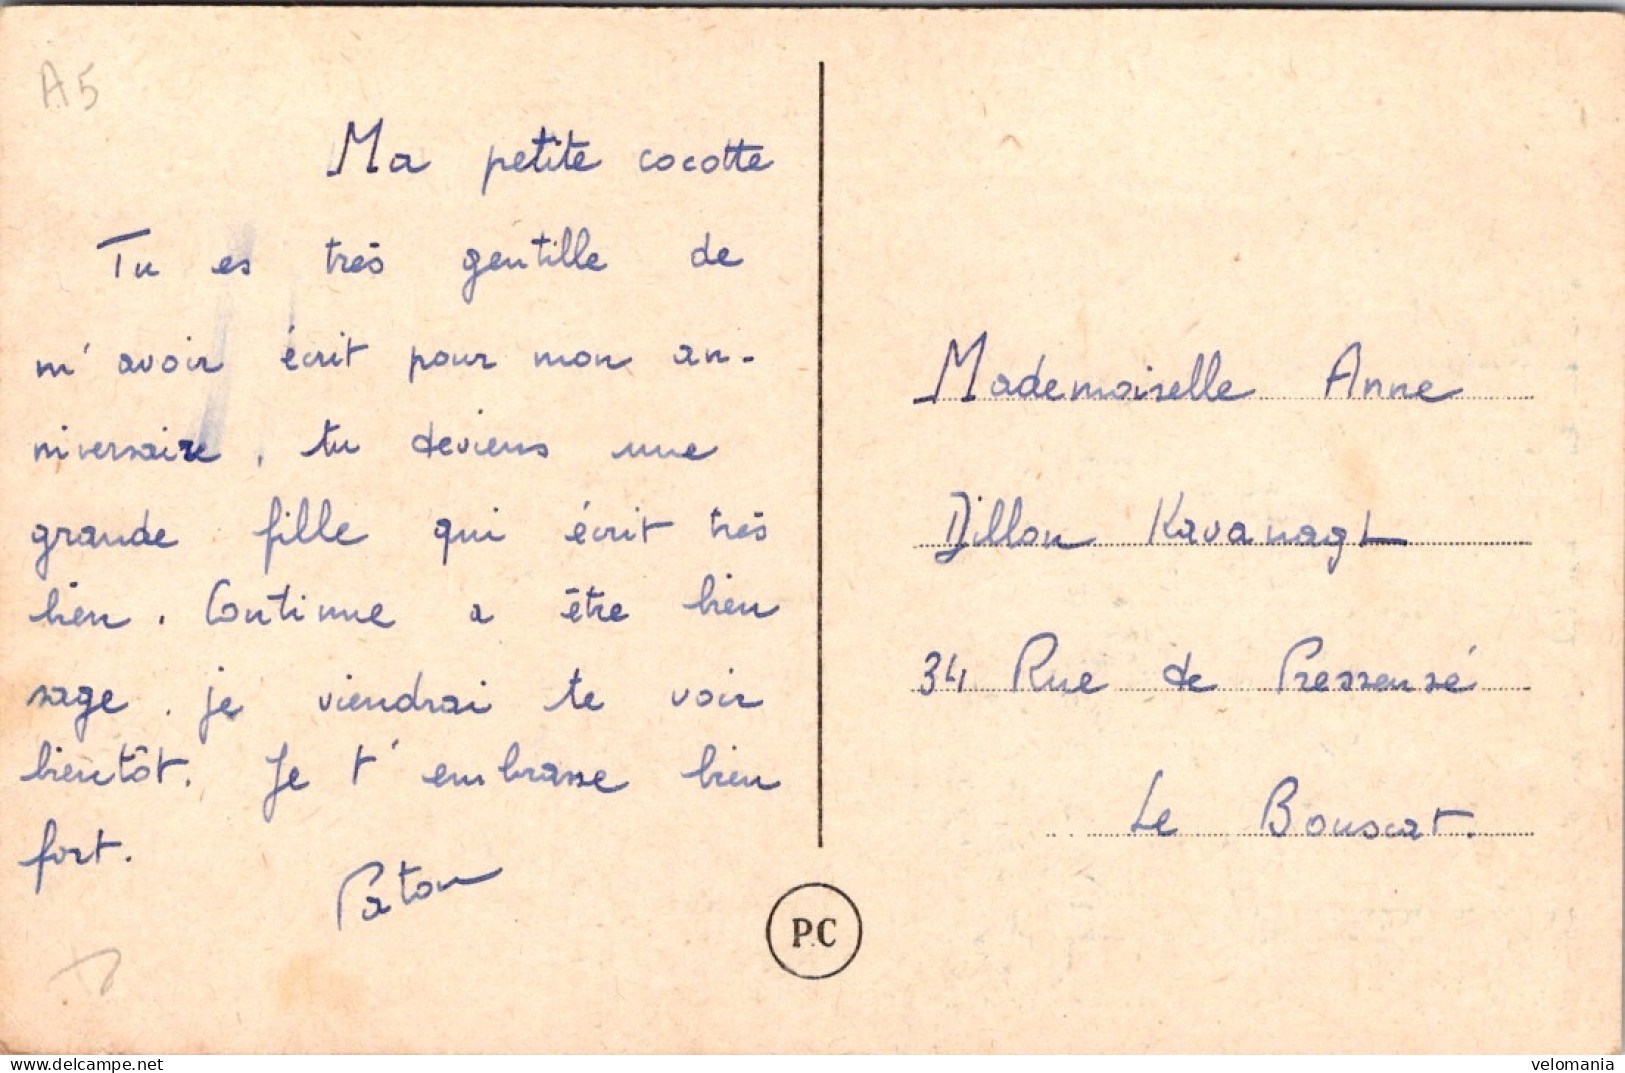 A5
Ma petite cocotte
Tu es très gentille de
m'avoir écrit pour mon an-
niversaire, tu deviens une
grande fille qui écrit très
bien. Continue a être bien
sage. je viendrai te voir
bientôt. Je t'embrasse bien
fort.
Paton
Mademoiselle Anne
Dillon Kavanagh
34 Rue de Pressensé
Le Bouscat.
P.C
www.delcampe.net
velomania